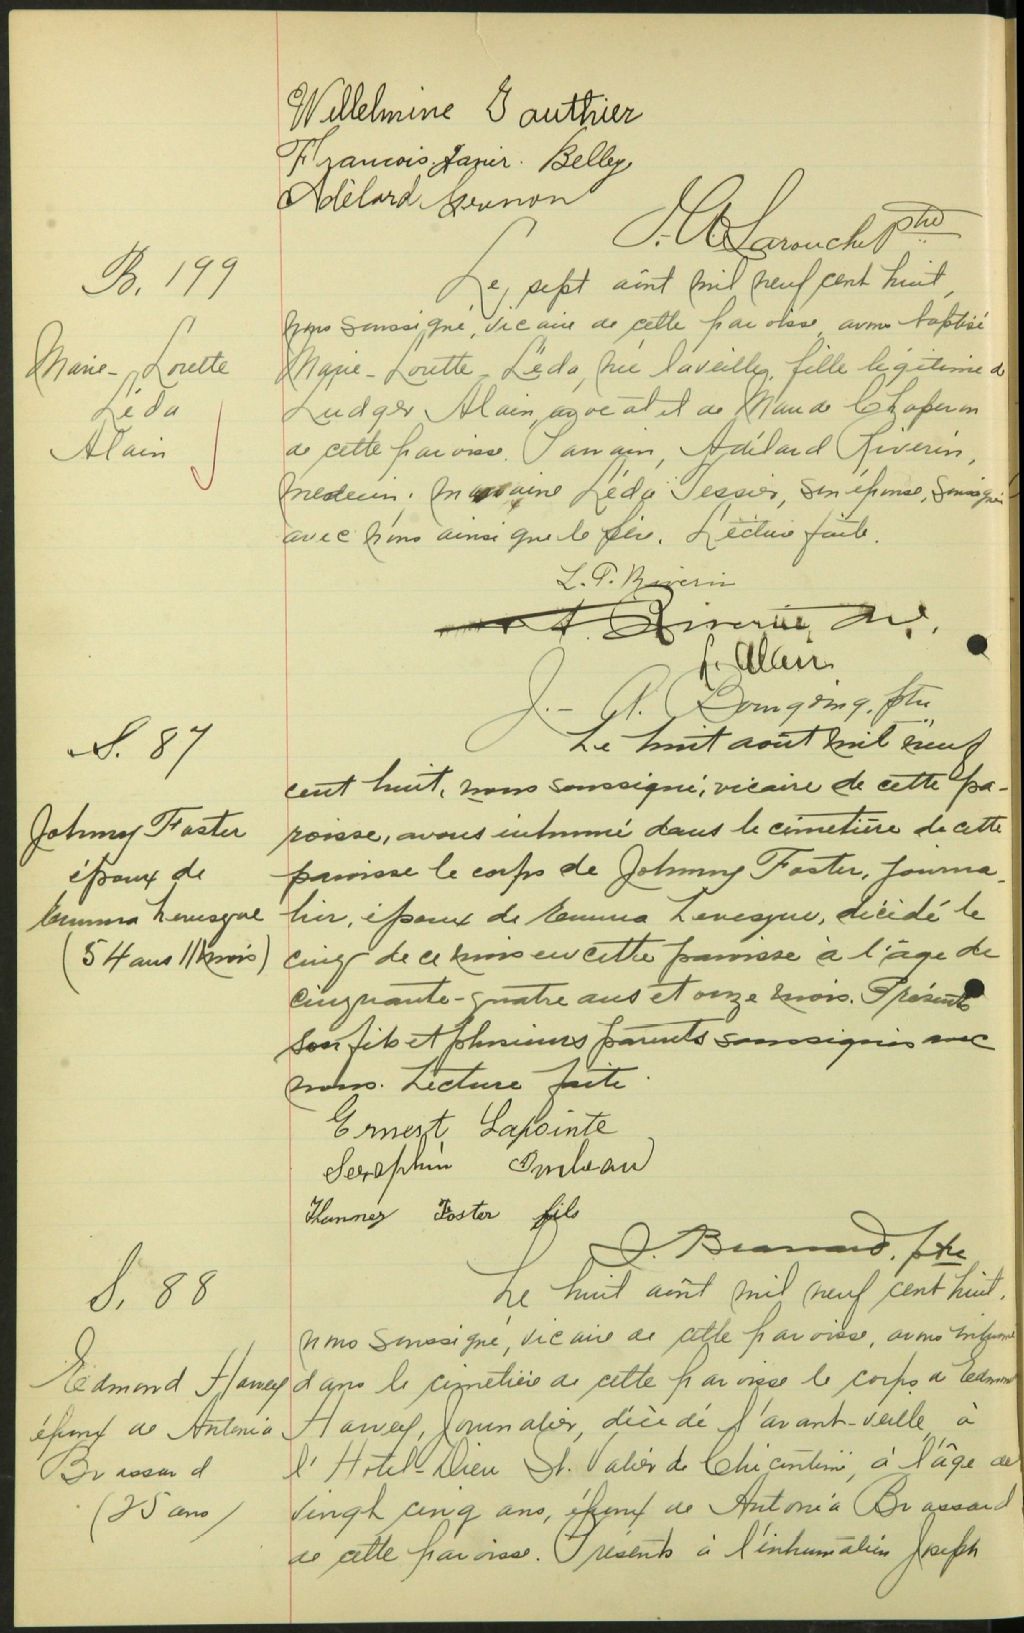 Willelmine Gauthier
François Xavier. Belley
Adélard
J. A. Larouche ptre
B. 199
Le sept août mil neuf cent huit,
nous soussigné, vicaire de cette paroisse, avons baptisé
Marie-Lorette
Léda
Alain
Marie-Lorette-Léda, née la veille, fille légitime de
Ludger Alain, avocat et de Maude Chaperon
de cette paroisse. Parrain, Adélard Riverin,
médecin; marraine Léda Tessier, son épouse, soussignés
avec nous ainsi que le père. Lecture faite.
L. T. Riverin
A. Riverin,
L. Alain
J.-A. Bourgoing, ptre
S. 87
Le huit août mil neuf
cent huit, nous soussigné, vicaire de cette pa-
Johnny Foster
époux de
Emma Levesque
(54 ans 11 mois)
roisse, avons inhumé dans le cimetière de cette
paroisse le corps de Johnny Foster, journa-
lier, époux de Emma Levesque, décédé le
cinq de ce mois en cette paroisse à l'âge de
cinquante-quatre ans et onze mois. Présents
son fils et plusieurs parents soussignés avec
nous. Lecture faite.
Ernest Lapointe
Seraphin
Foster fils
ptre
S. 88
Le huit août mil neuf cent huit,
nous soussigné, vicaire de cette paroisse, avons inhumé
Edmond Harvey
époux de Antonia
Brassard
(25 ans)
dans le cimetière de cette paroisse le corps de Edmond
Harvey, Journalier, décédé l'avant-veille, à
l'Hotel-Dieu St. Valier de Chicoutimi, à l'âge de
vingt cinq ans, époux de Antonia Brassard
de cette paroisse. Présents à l'inhumation Joseph